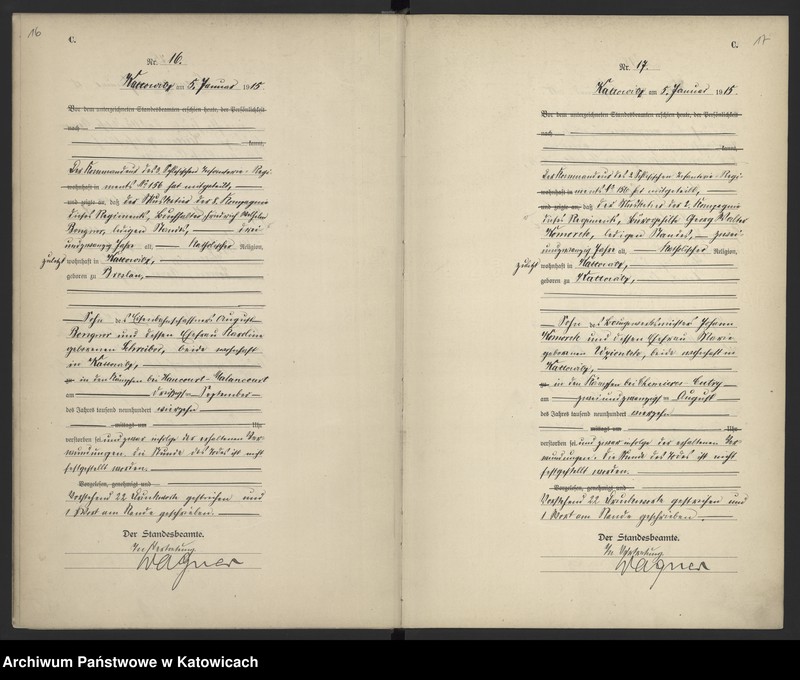 16
C.
Nr. 16.
Kattowitz am 5. Januar 1915
Vor dem unterzeichneten Standesbeamten erschien heute, der Persönlichkeit
nach
kannt,
Der Kommandeur des 3. Schlesischen Infanterie-Regi-
wohnhaft in ments No 156 hat mitgeteilt,
und zeigte an, daß der Musketier der 8. Kompagnie
dieses Regiments, Friedrich
ledigen Standes, drei
undzwanzig Jahre alt, katholischer Religion,
zuletzt wohnhaft in Kattowitz,
geboren zu Breslau,
Sohn des Eisenbahnschaffners August
und dessen Ehefrau
geborenen Schreiber, beide wohnhaft
in Kattowitz,
zu in den Kämpfen bei
am September
des Jahres tausend neunhundert vierzehn
mittags um Uhr
verstorben sei und zwar infolge der erhaltenen Ver-
wundungen. Die Stunde des Todes ist nicht
festgestellt worden.
Vorgelesen, genehmigt und
Vorstehend 22 Druckworte gestrichen und
1 Wort am Rande geschrieben.
Der Standesbeamte.
In Vertretung
Wagner
17
C.
Nr. 17.
Kattowitz am 5. Januar 1915.
Vor dem unterzeichneten Standesbeamten erschien heute, der Persönlichkeit
nach
kannt,
Der Kommandeur des 3. Schlesischen Infanterie-Regi-
wohnhaft in ments No 156 hat mitgeteilt,
und zeigte an, daß der Musketier der Kompagnie
dieses Regiments, Georg Walter
ledigen Standes, zwei-
undzwanzig Jahre alt, katholischer Religion,
zuletzt wohnhaft in Kattowitz,
geboren zu Kattowitz,
Sohn des Johann
und dessen Ehefrau Marie
geborenen beide wohnhaft in
Kattowitz,
zu in den Kämpfen bei
am zweiundzwanzigsten August
des Jahres tausend neunhundert vierzehn
mittags um Uhr
verstorben sei und zwar infolge der erhaltenen Ver-
wundungen. Die Stunde des Todes ist nicht
festgestellt worden.
Vorgelesen, genehmigt und
Vorstehend 22 Druckworte gestrichen und
1 Wort am Rande geschrieben.
Der Standesbeamte.
In Vertretung
Wagner
Archiwum Państwowe w Katowicach